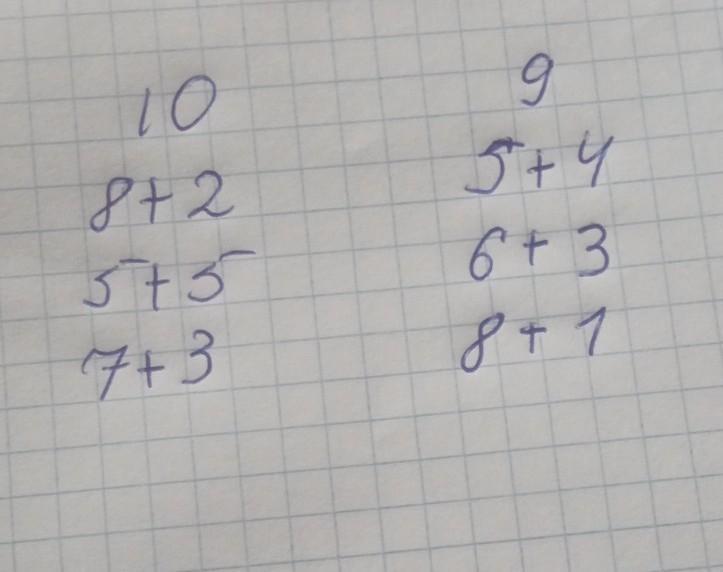 10
8+2
5+5
7+3
9
5+4
6+3
8+1